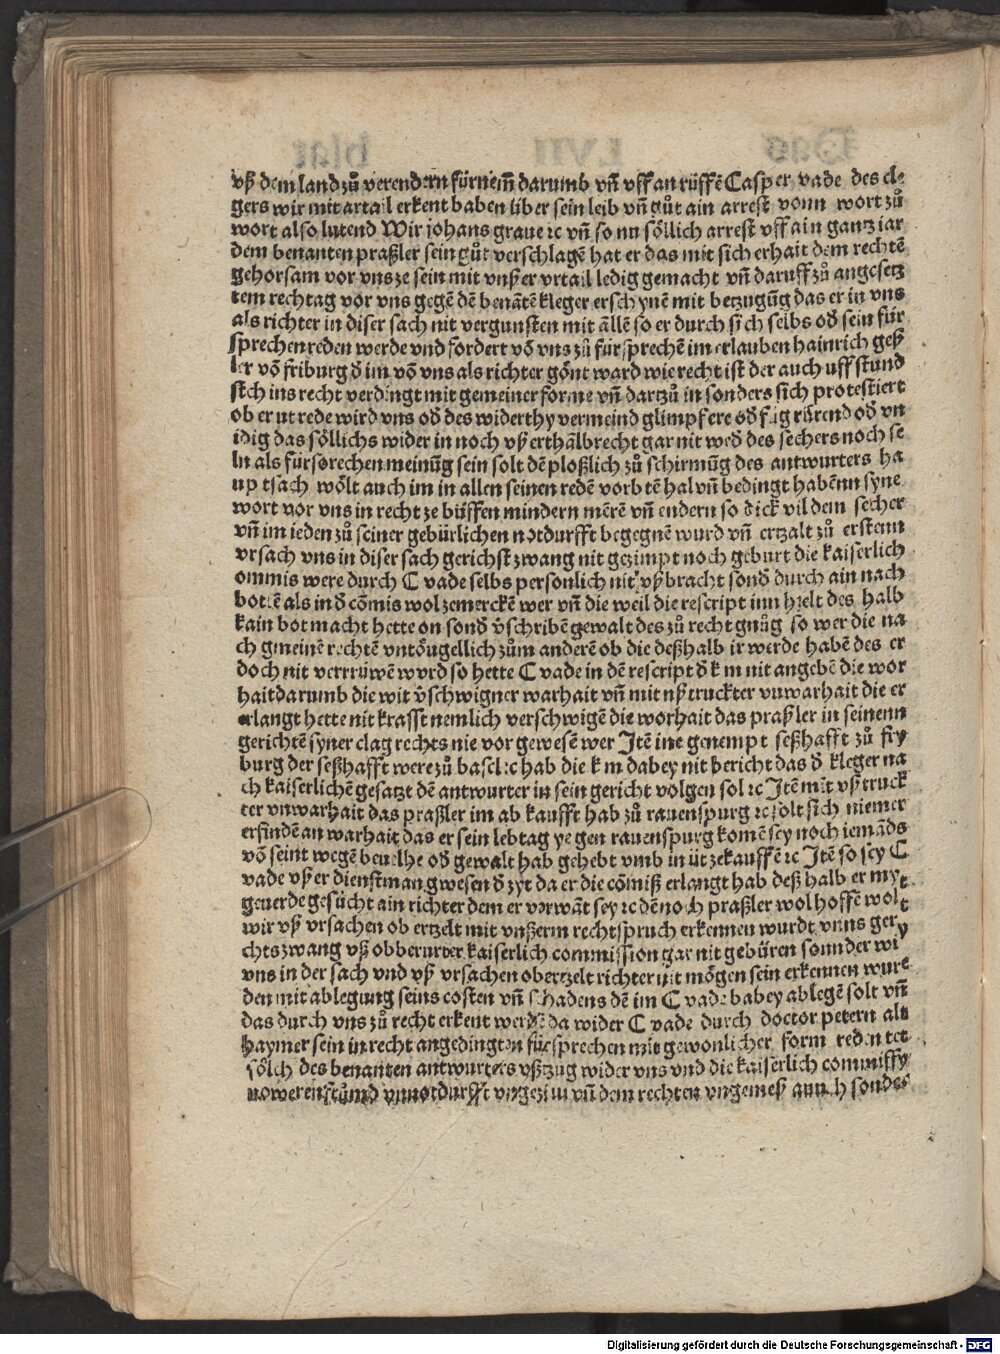 vß dem land zů verendern fürnem̄ darumb vn̄ vff an rüffē Casper vade des cle
gers wir mit artail erkent haben über sein leib vn̄ gůt ain arrest vonn wort zů
wort also lutend Wir johans graue ⁊c vn̄ so nu söllich arrest vff ain gantz iar
dem benanten praßler sein gůt verschlagē hat er das mit sich erhait dem rechtē
gehorsam vor vns ze sein mit vnßer vrtail ledig gemacht vn̄ daruff zů angesetz
tem rechtag vor vns gegē dē benātē kleger erschynē mit bezugūg das er in vns
als richter in diser sach nit vergunsten mit āllē so er durch sich selbs od̄ sein für
sprechen reden werde vnd fordert vō vns zů fürsprechē im erlauben hainrich geß
ler vō friburg d̄ im vō vns als richter gönt ward wie recht ist der auch vff stund
sich ins recht verdingt mit gemeiner forme vn̄ dartzů in sonders sich protestiert
ob er ut rede wird vns od̄ des widerthy vermeind glimpf ere od̄ fůg růrend od̄ vn
idig das söllichs wider in noch vß erthālbrecht gar nit wed̄ des sechers noch se
ln als fürsorechen meinūg sein solt dē ploßlich zů schirmūg des antwurters ha
up tsach wölt auch im in allen seinen redē vorbtē hal vn̄ bedingt habēnn syne
wort vor vns in recht ze büssen mindern mērē vn̄ endern so dick vil dem secher
vn̄ im ieden zů seiner gebürlichen notdurfft begegnē wurd vn̄ ertzalt zů erstem
vrsach vns in diser sach gerichst zwang nit gezimpt noch geburt die kaiserlich
ommis were durch C vade selbs personlich nit vß bracht sond̄ durch ain nach
bottē als in d̄ cōmis wol zemerckē wer vn̄ die weil die rescript inn hielt des halb
kain bot macht hette on sond̄ v̄schribē gewalt des zů recht gnůg so wer die na
ch gmeinē rechtē vntöugellich zům anderē ob die deßhalb ir werde habē des er
doch nit verrrüwē wurd so hette C vade in dē rescript d̄ k m nit angebē die wor
hait darumb die wit v̄schwigner warhait vn̄ mit nß truckter vnwarhait die er
erlangt hette nit krafft nemlich verschwigē die worhait das praßler in seinenn
gerichtē syner clag rechts nie vor gewesē wer Jtē ine genempt seßhafft zů fry
burg der seßhafft were zů basel ⁊c hab die k m dabey nit bericht das d̄ kleger na
ch kaiserlichē gesatzt dē antwurter in sein gericht volgen sol ⁊c Jtē mit vß truck
ter vnwarhait das praßler im ab kaufft hab zů rauenspurg ⁊c solt sich niemer
erfindē an warhait das er sein lebtag ye gen rauenspurg komē sey noch iemāds
vō seint wegē beuelhe od̄ gewalt hab gehebt vmb in üt zekauffē ⁊c Jtē so sey C
vade vßer dienstman gwesen d̄ zyt da er die cōmiß erlangt hab deß halb er myt
geuerde gesücht ain richter dem er verwāt sey ⁊c dēnoch praßler wol hoffē wolt
wir vß vrsachen ob ertzelt mit vnßerm rechtspruch erkennen wurdt vnns gery
chts zwang vß obberurter kaiserlich commission gar nit gebüren sonnder wi
vns in der sach vnd vß vrsachen obertzelt richter nit mögen sein erkennen wure
den mit ablegung seins costen vn̄ schadens dē im C vade babey ablegē solt vn̄
das durch vns zů recht erkent werdē da wider C vade durch doctor petern alt
haymer sein in recht angedingten fürsprechen mit gewonlicher form reden tet
sölch des benanten antwurters vßzug wider vns vnd die kaiserlich commissy
vn̄ dem rechten vngemeß auuch sondes